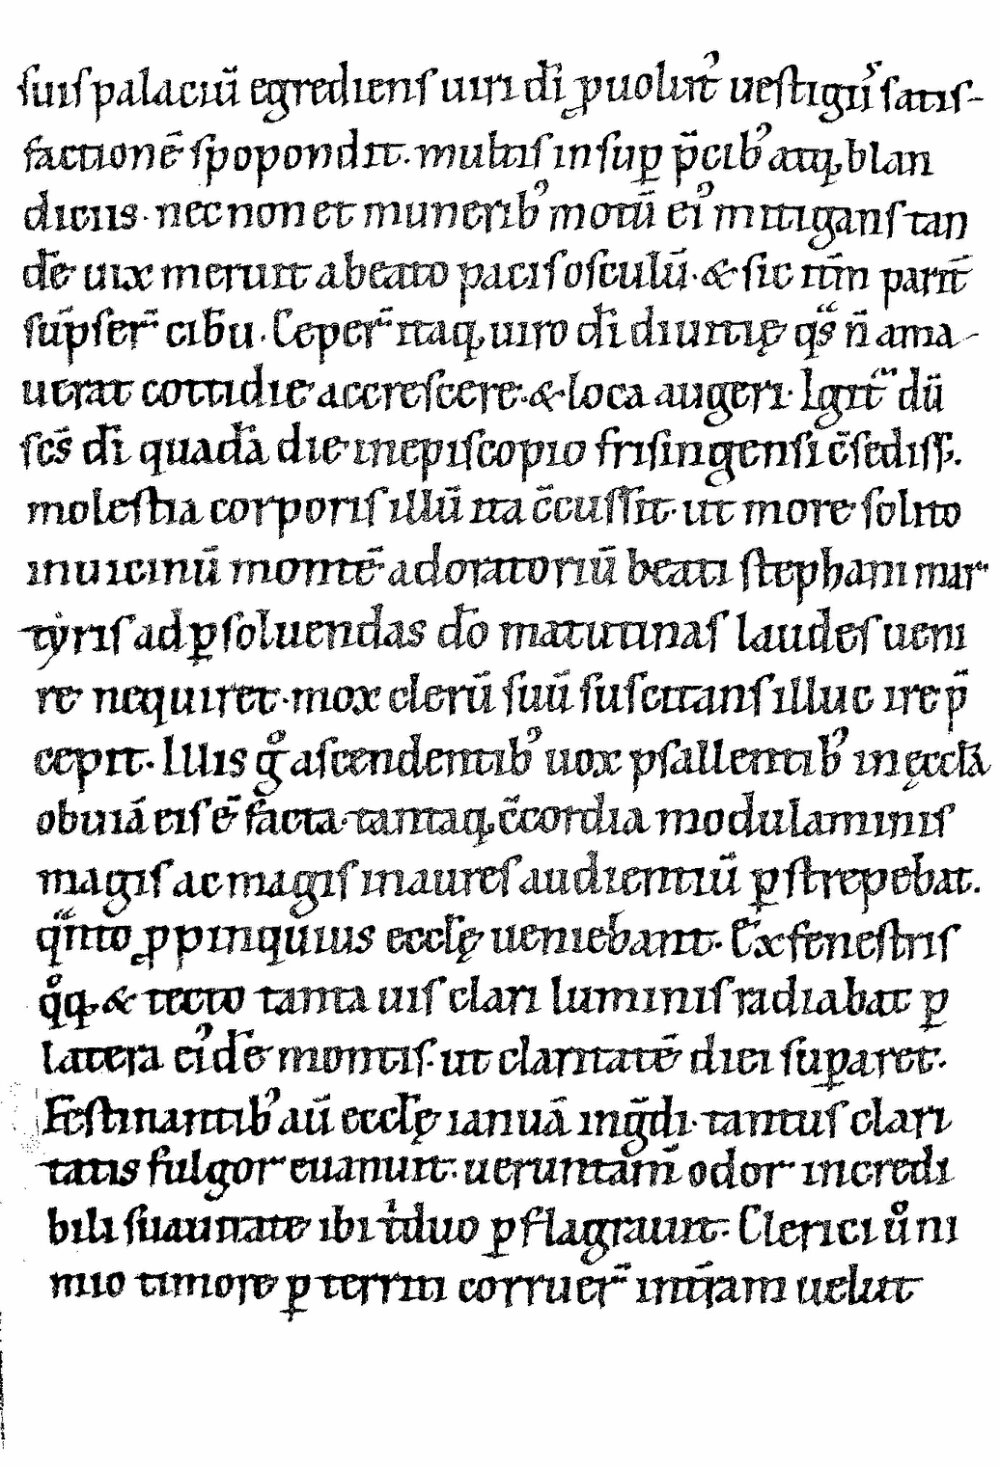 ſuiſ palaciū egredienſ uiri dī ꝓuolut᷒ ueſtigiiſ ſatiſ-
factionē ſpopondit. multiſ inſup̱ p̄cib᷒ atq; blan
diciis. nec non et munerib᷒ motū ei᷒ mitiganſ tan
dē uix meruit a beato paciſ oſculū. & ſic itīm parit̄
ſūpſer̄ cibū. Ceper̄ itaq; uiro dī diuitię qᷓſ n̄ ama-
uerat cottidie accreſcere. & loca augeri. Igit᷑ dū
ſcſ̄ dī quadā die in epiſcopio friſingenſi c̄ſediſſ;.
moleſtia corporiſ illū ita c̄cuſſit. ut more ſolito
in uicinū montē ad oratoriū beati ſtephani mar-
tẏriſ ad ꝑſoluendas dō matutinaſ laudeſ ueni
re nequiret. mox clerū ſuū ſuſcitanſ illuc ire p̄
cepit. Illis gͦ aſcendentib᷒ uox pſallentiū in ęccl̄a
obuiā eiſ ē facta. tantaq; c̄cordia modulaminiſ
magiſ ac magiſ in aureſ audientiū ꝑſtrepebat.
qᷓnto ꝓpinquius eccl̄ę ueniebant. Ex feneſtriſ
qͦq; & tecto tanta uiſ clari luminiſ radiabat ꝑ
latera ei᷒dē montiſ. ut claritatē diei ſuꝑaret.
Feſtinantib᷒ aū eccl̄ę ianuā ing̅di. tantuſ clari
tatis fulgor euanuit. ueruntam̄ odor incredi
bili ſuauitate ibi tͥduo ꝑ flagrauit. Clerici uͦ ni
mio timore ꝑterriti corruer̄ in tr̄am uelut